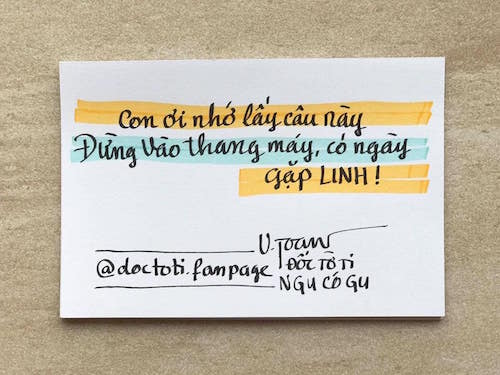 Con ơi nhớ lấy câu này
Đừng vào thang máy, có ngày
gặp LINH!
V.Toan
@doctoti.fanpage ĐỐC TỜ TI
NGU CÓ GU